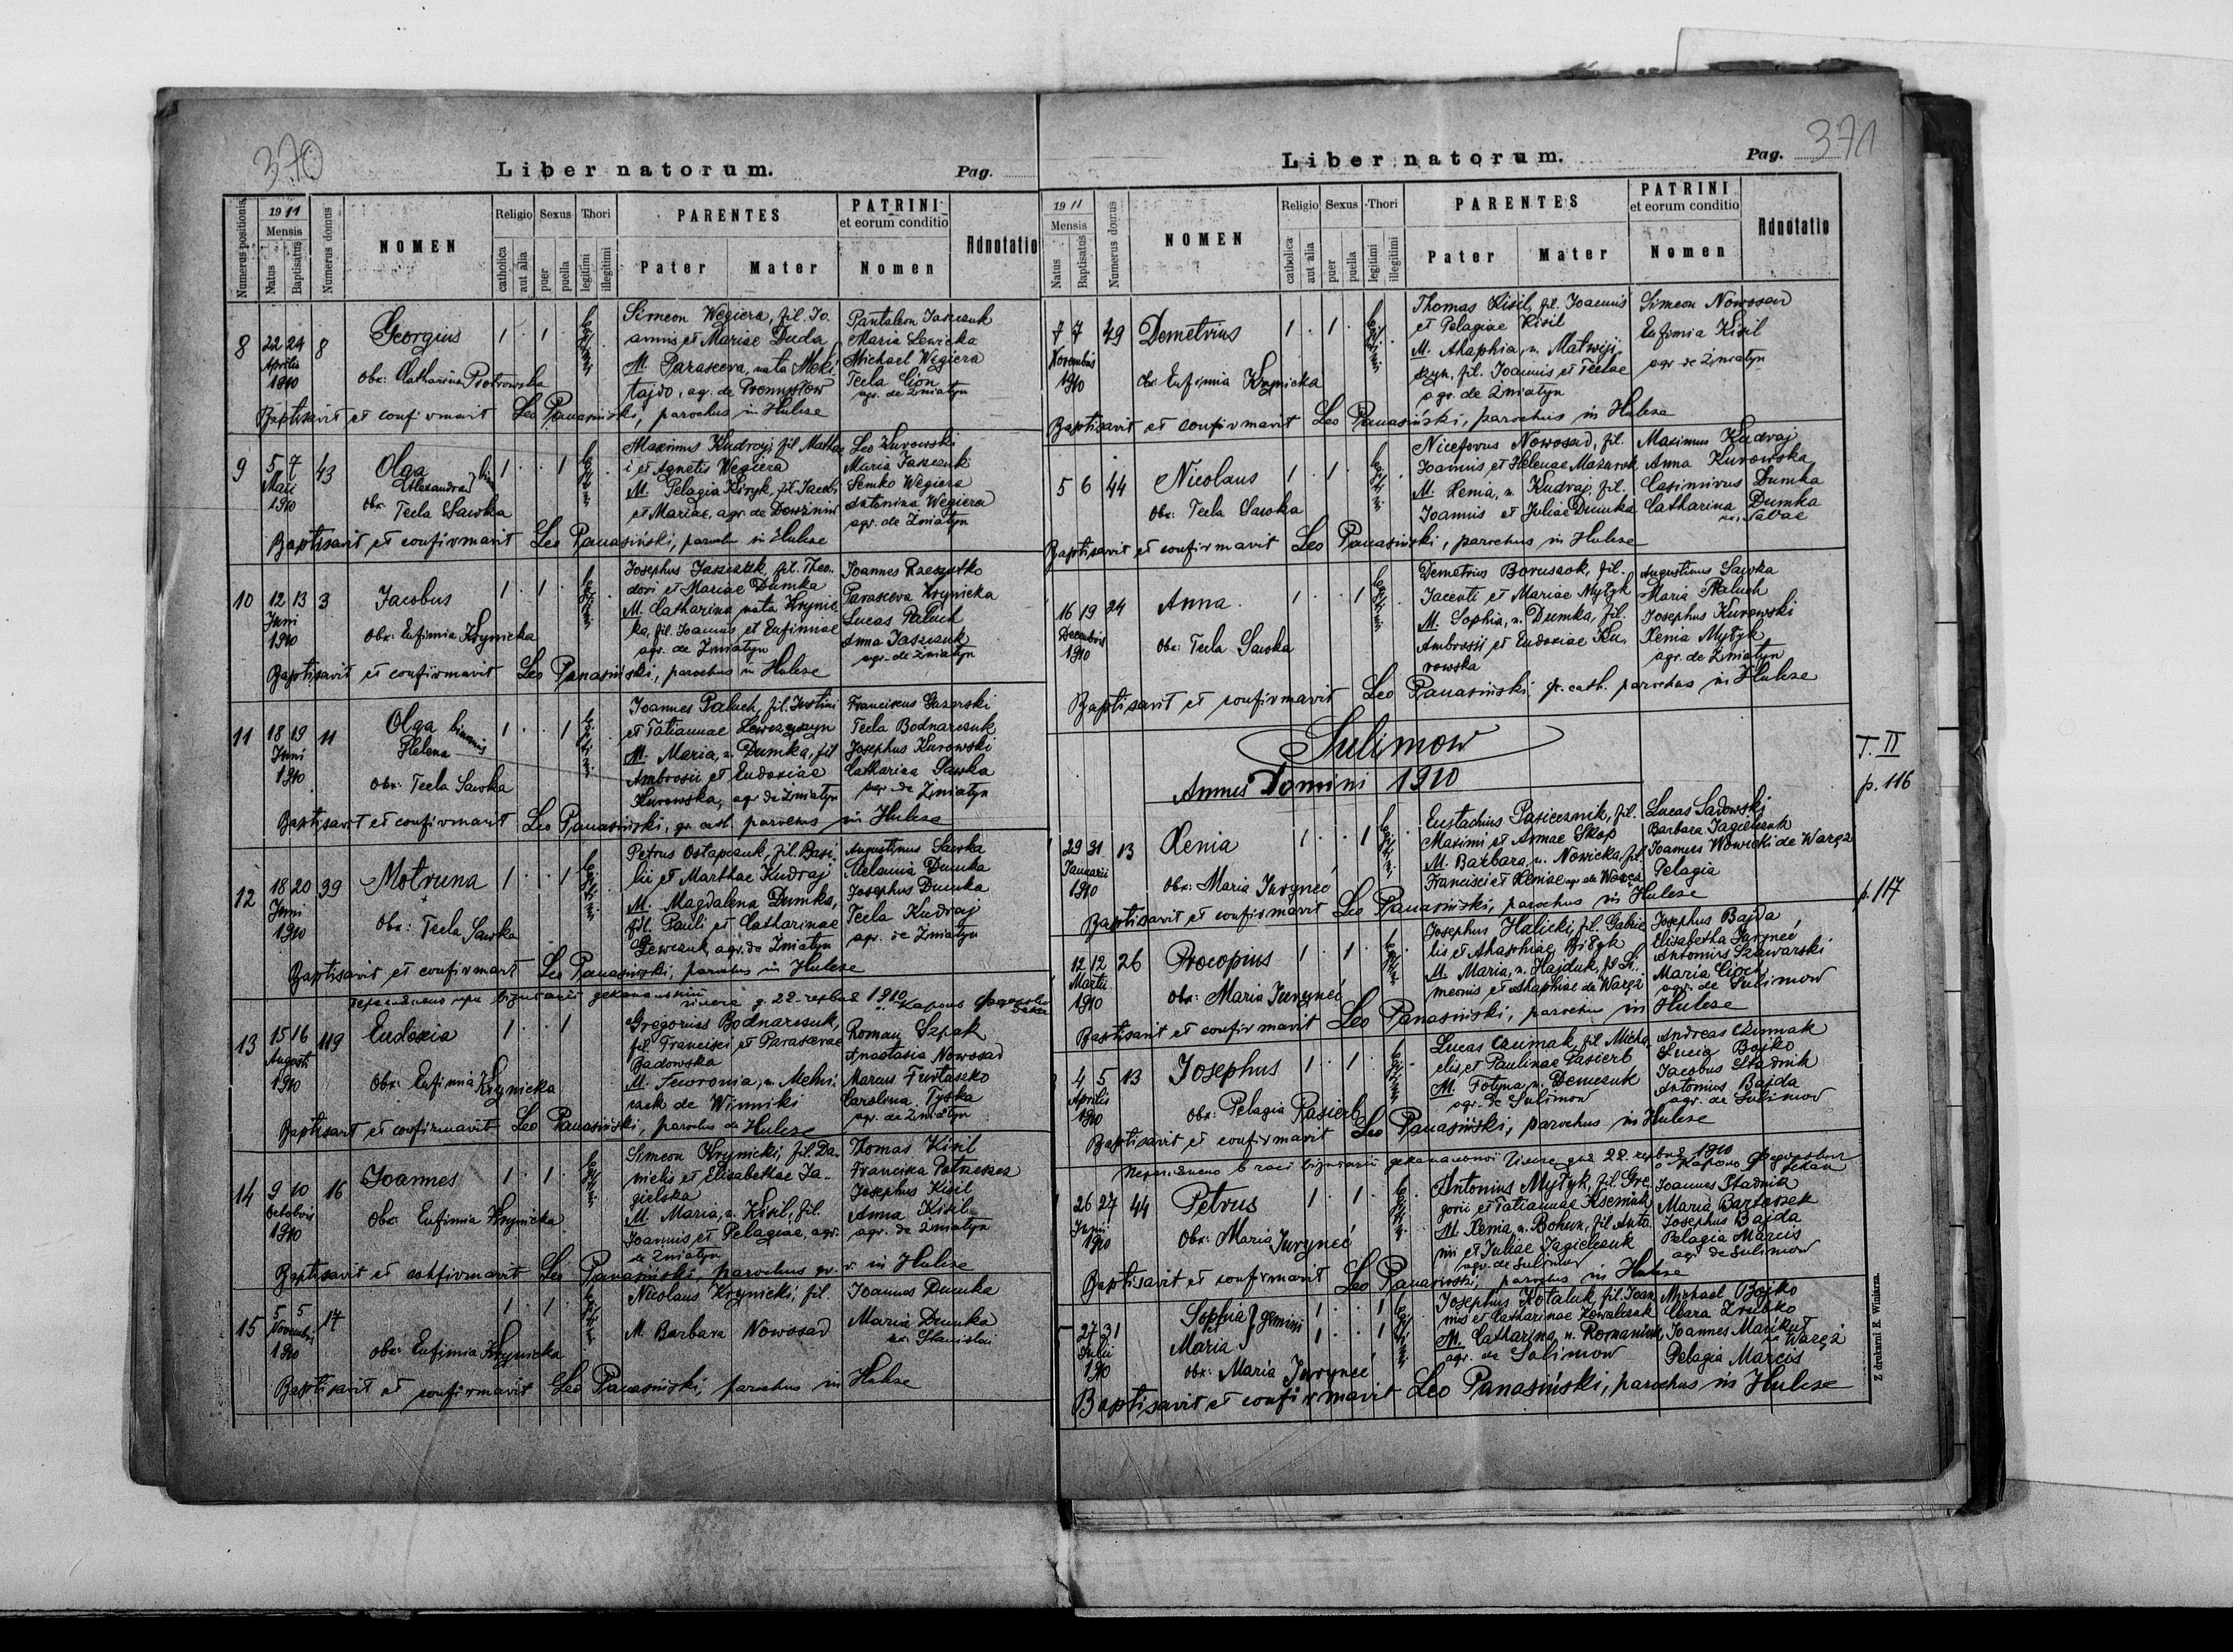 370
Liber natorum.
Pag.
Numerus positionis
1911
Mensis
Natus
Baptisatus
Numerus domus
NOMEN
Religio
catholica
aut alia
Sexus
puer
puella
Thori
legitimi
illegitimi
PARENTES
Pater
Mater
PATRINI
et eorum conditio
Nomen
Adnotatio
8 22 24 8 Georgius 1 1 legitimi
Aprilis
1910
Obx: Catharina Piotrowska
Simeon Węgiera, fil. Jo-
annis et Mariae Duda
M. Parasceva, nata Meki-
tajdo, ag. de Przemysłow
Pantaleon Jaszczuk
Maria Lewicka
Michael Węgiera
Tecla Cion
agr. de Żniatyn
Baptisavit et confirmavit Leo Panasiński, parochus in Hulcze
9 5 7 43 Olga 1 1
Alexandra
Maii
1910
Obx: Tecla Sawka
Maximus Kudraj, fil Mathae
i et Agnetis Węgiera
M. Pelagia Kiryk, fil. Jacobi
et Mariae, agr. de
Leo Kurowski
Maria Jaszczuk
Semko Węgiera
Antonina Węgiera
agr. de Żniatyn
Baptisavit et confirmavit Leo Panasiński, paroch in Hulcze
10 12 13 3 Jacobus 1 1
Juni
1910
Obx: Eufimia Krynicka
Josephus Jaszczuk, fil. Theo-
dori et Mariae Dumka
M. Catharina, nata Krynic-
ka, fil. Joannis et Eufimiae
agr. de Żniatyn
Joannes Rzeszutko
Parasceva Krynicka
Lucas Paluch
Anna Jaszczuk
agr. de Żniatyn
Baptisavit et confirmavit Leo Panasiński, parochus in Hulcze
11 18 19 11 Olga binomis 1 1
Helena
Juni
1910
Obx: Tecla Sawka
Joannes Paluch, fil. Justini
et Tatiannae Lewczyszyn
M. Maria, n. Dumka, fil
Ambrosii et Eudoxiae
Kurowska, agr de Żniatyn
Franciscus Gazarski
Tecla Bodnarczuk
Josephus Kurowski
Catharina Sawka
agr de Żniatyn
Baptisavit et confirmavit Leo Panasiński, gr. cath. parochus in Hulcze
12 18 20 39 Motruna 1 1
Juni
1910
Obx: Tecla Sawka
Petrus Ostapczuk, fil. Basi-
lii et Marthae Kudraj
M. Magdalena Dumka,
fil. Pauli et Catharinae
Szewczuk, agr. de Żniatyn
Augustinus Sawka
Melania Dumka
Josephus Dumka
Tecla Kudraj
agr. de Żniatyn
Baptisavit et confirmavit Leo Panasiński, parochus in Hulcze
13 15 16 119 Eudoxia 1 1
Augusti
1910
Obx: Eufimia Krynicka
Gregorius Bodnarczuk,
fil. Francisci et Parascevae
Badowska
M. Fewronia, n. Melni-
czuk de Winniki
Roman Szpak
Anastasia Nowosad
Marcus Furtaszko
Carolina Tyska
agr. de Żniatyn
Baptisavit et confirmavit Leo Panasiński, parochus de Hulcze
14 9 10 16 Joannes 1 1
Octobris
1910
Obx: Eufimia Krynicka
Simeon Krynicki, fil. Da-
nielis et Elisabethae Ja-
gielska
M. Maria, n. Kisil, fil.
Joannis et Pelagiae, agr.
de Żniatyn
Thomas Kisil
Francisca
Josephus Kisil
Anna Kisil
agr. de Żniatyn
Baptisavit et confirmavit Leo Panasiński, parochus gr. r. in Hulcze
15 5 5 17 1 1
Novembris
1910
Obx: Eufimia Krynicka
Nicolaus Krynicki, fil.
M. Barbara Nowosad
Joannes Dumka
Maria Dumka
ux. Stanislai
Baptisavit et confirmavit Leo Panasiński, parochus in Hulcze
371
Liber natorum.
Pag.
1911
Mensis
Natus
Baptisatus
Numerus domus
NOMEN
Religio
catholica
aut alia
Sexus
puer
puella
Thori
legitimi
illegitimi
PARENTES
Pater
Mater
PATRINI
et eorum conditio
Nomen
Adnotatio
7 7 49 Demetrius 1 1
Novembris
1910
Obx: Eufimia Krynicka
Thomas Kisil, fil. Joannis
et Pelagiae Kisil
M. Ahaphia, n. Matwiji-
szyn, fil. Joannis et Teclae
agr. de Żniatyn
Simeon Nowosad
Eufimia Kisil
agr de Żniatyn
Baptisavit et confirmavit Leo Panasiński, parochus in Hulcze
5 6 44 Nicolaus 1 1
Obx: Tecla Sawka
Niceforus Nowosad, fil.
Joannis et Helenae Mazurok
M. Xenia, n. Kudraj, fil.
Joannis et Juliae Dumka
Maximus Kudraj
Anna Kurowska
Casimirus Dumka
Catharina Dumka
Baptisavit et confirmavit Leo Panasiński, parochus in Hulcze
16 19 24 Anna 1 1
Decembris
1910
Obx: Tecla Sawka
Demetrius Boruszok, fil.
Jacenti et Mariae Mytyk
M. Sophia, n. Dumka, fil.
Ambrosii et Eudoxiae Ku-
rowska
Augustinus Sawka
Maria Paluch
Josephus Kurowski
Xenia Mytyk
agr. de Żniatyn
Baptisavit et confirmavit Leo Panasiński, gr. cath. parochus in Hulcze
Sulimow
Annus Domini 1910
T. II
p. 116
29 31 13 Xenia 1 1
Januarii
1910
Obx: Maria Juryneć
Eustachius Pasicznik, fil.
Maximi et Annae Skop
M. Barbara, n. Nowicka, fil.
Francisci et Xeniae agr de Waręż
Lucas Sadowski
Barbara Jagielczuk
Joannes Nowicki de Waręż
Pelagia
Baptisavit et confirmavit Leo Panasiński, parochus in Hulcze
p. 117
12 12 26 Procopius 1 1
Martii
1910
Obx: Maria Juryneć
Josephus Halicki, fil. Gabrie-
lis et Ahaphiae
M. Maria, n. Hajduk, fil Si-
meonis et Ahaphiae de Waręż
Josephus Bajda
Elisabetha Juryneć
Antonius Szawarski
Maria Cioch
agr. de Sulimow
Baptisavit et confirmavit Leo Panasiński, parochus in Hulcze
4 5 13 Josephus 1 1
Aprilis
1910
Obx: Pelagia Pasierb
Lucas Czumak, fil Micha-
elis, et Paulinae Pasierb
M. Fotyna, n. Demczuk
agr. de Sulimow
Andreas Czumak
Lucia Bojko
Jacobus Stadnik
Antonius Bajda
agr. de Sulimow
Baptisavit et confirmavit Leo Panasiński, parochus in Hulcze
26 27 44 Petrus 1 1
Junii
1910
Obx: Maria Juryneć
Antonius Mytyk, fil. Gre-
gorii, et Tatiannae
M. Xenia, n. Bohun, fil Anto-
nii et Juliae Jagielczuk
agr. de Sulimow
Joannes Stadnik
Maria Bartoszek
Josephus Bajda
Pelagia Marcis
agr de Sulimow
Baptisavit et confirmavit Leo Panasiński, parochus in Hulcze
27 31 Sophia } gemini 1 1
Maria 1 1
Julii
1910
Obx: Maria Juryneć
Josephus Kotaluk, fil. Joan-
nis et Catharinae Kowalczuk
M. Catharina, n. Romaniuk,
agr. de Sulimow
Michael Bojko
Clara Zrubko
Joannes Marikut
de Waręż
Pelagia Marcis
Baptisavit et confirmavit Leo Panasiński, parochus in Hulcze
Z drukarni E. Winiarza.